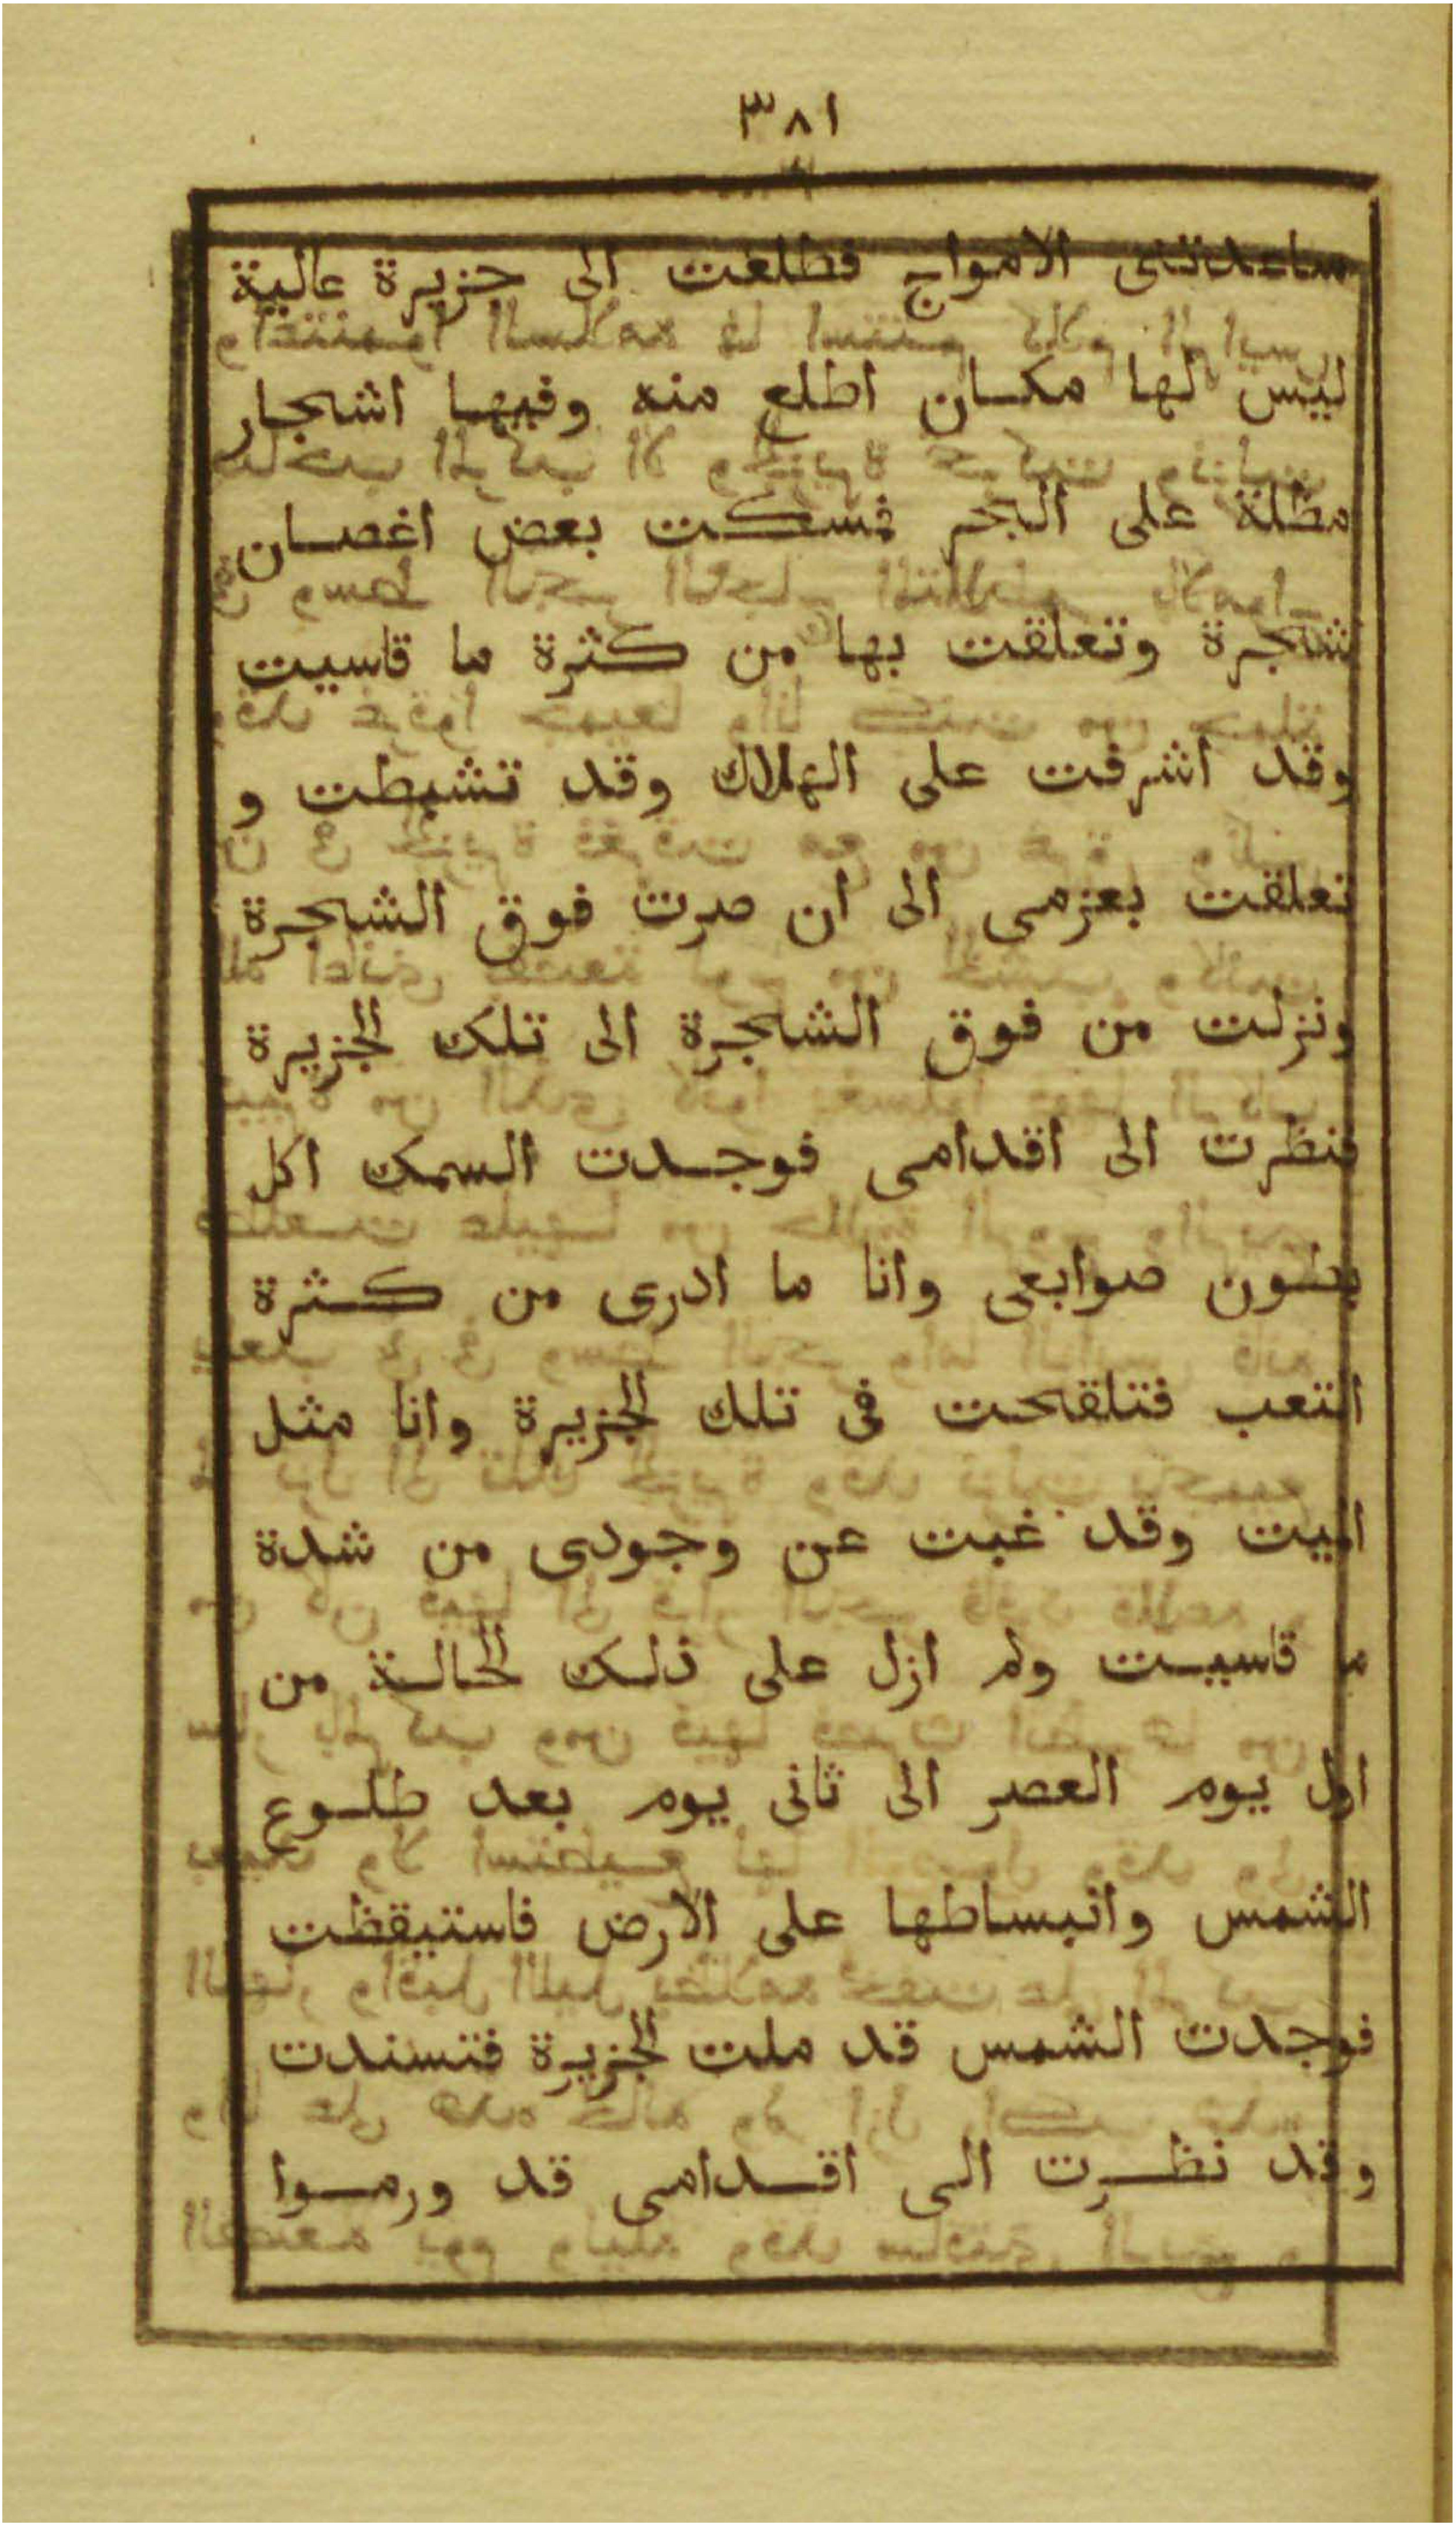 ٣٨١
ساعدتنى الامواج فطلعت الى جزيرة عالية
ليس لها مكان اطلع منه وفيها اشجار
مطلة على البحر فمسكت بعض اغصان
شجرة وتعلقت بها من كثرة ما قاسيت
وقد اشرفت على الهلاك وقد تشبطت و
تعلقت بعزمى الى ان صرت فوق الشجرة
ونزلت من فوق الشجرة الى تلك الجزيرة
فنظرت الى اقدامى فوجدت السمك اكل
بطون صوابعى وانا ما ادرى من كثرة
التعب فتلقحت فى تلك الجزيرة وانا مثل
الميت وقد غبت عن وجودى من شدة
ما قاسيت ولم ازل على ذلك الحالة من
اول يوم العصر الى ثانى يوم بعد طلوع
الشمس وانبساطها على الارض فاستيقظت
فوجدت الشمس قد ملت الجزيرة فتسندت
وقد نظرت الى اقدامى قد ورموا